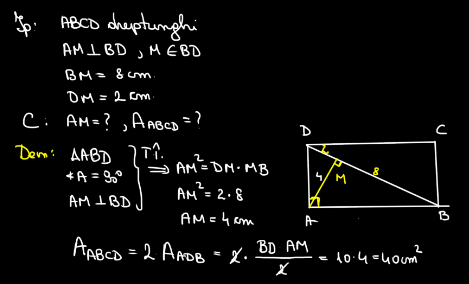 Ip: ABCD dreptunghi
AM ⊥ BD , M ∈ BD
BM = 8 cm
DM = 2 cm
C: AM = ? , A_ABCD = ?
Dem: ΔABD
∢A = 90°
AM ⊥ BD
T.Î. ⟹ AM² = DM · MB
AM² = 2 · 8
AM = 4 cm
A_ABCD = 2 A_ADB = 2 · (BD AM)/2 = 10 · 4 = 40 cm²
D
C
2
4
M
8
A
B